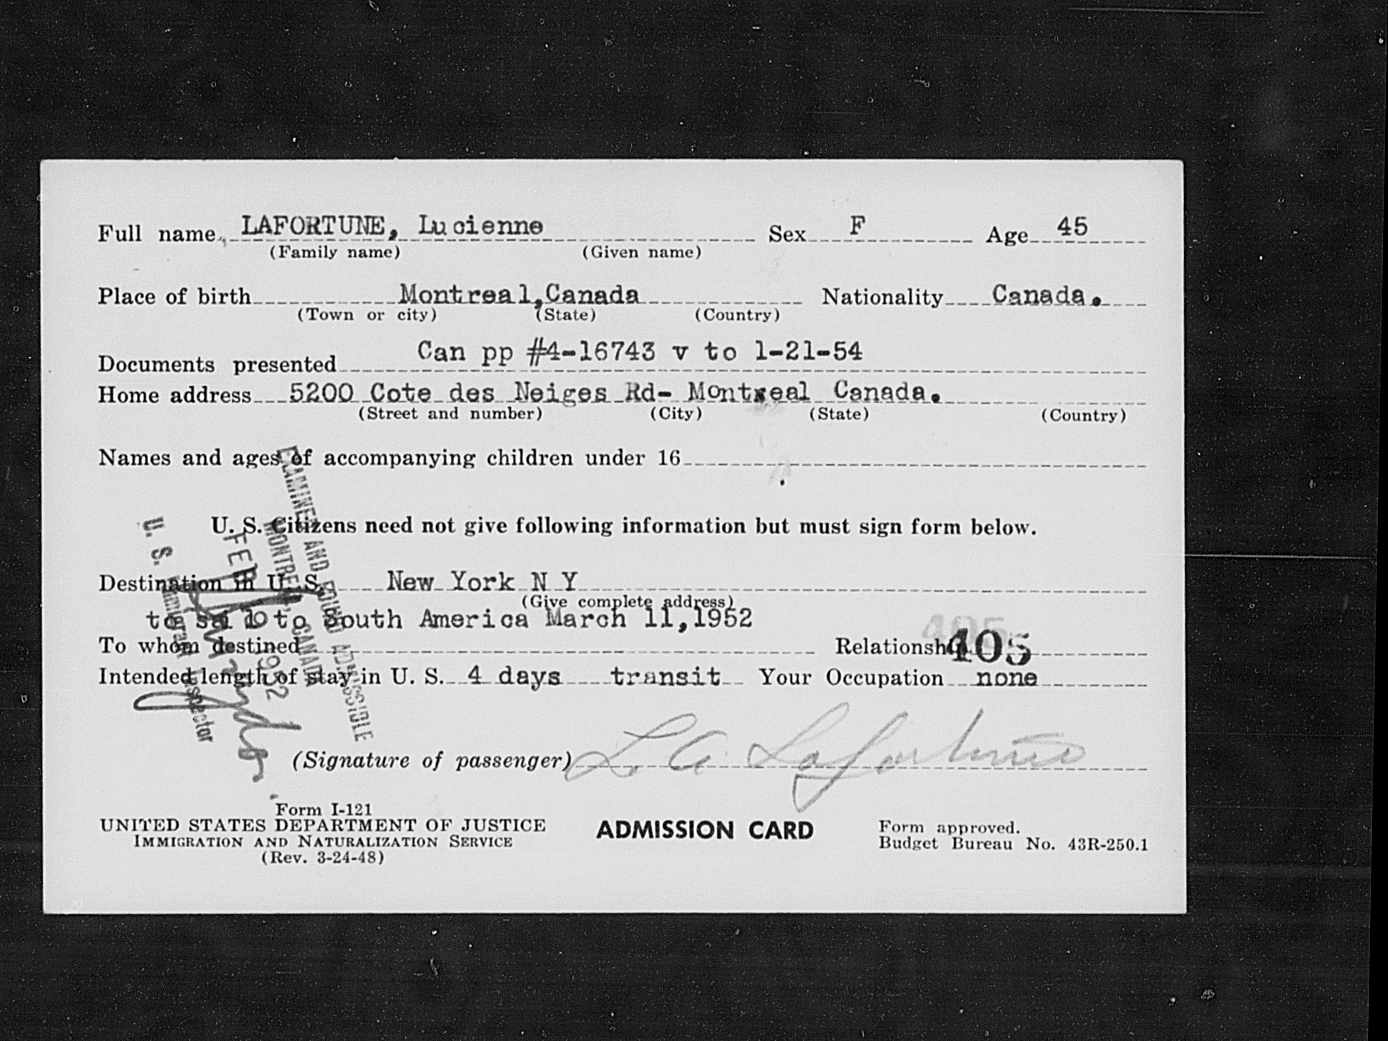 Full name LAFORTUNE, Lucienne Sex F Age 45
(Family name) (Given name)
Place of birth Montreal,Canada Nationality Canada.
(Town or city) (State) (Country)
Can pp #4-16743 v to 1-21-54
Documents presented
Home address 5200 Cote des Neiges Rd- Montreal Canada.
(Street and number) (City) (State) (Country)
Names and ages of accompanying children under 16
U. S. Citizens need not give following information but must sign form below.
Destination in U. S. New York N Y
(Give complete address)
to sail to South America March 11,1952
To whom destined Relationship 405
Intended length of stay in U. S. 4 days transit Your Occupation none
EXAMINED AND FOUND ADMISSIBLE
MONTREAL, CANADA
FEB 1952
U. S. Immigrant Inspector
(Signature of passenger) L. A. Lafortune
Form I-121
UNITED STATES DEPARTMENT OF JUSTICE
IMMIGRATION AND NATURALIZATION SERVICE
(Rev. 3-24-48)
ADMISSION CARD
Form approved.
Budget Bureau No. 43R-250.1